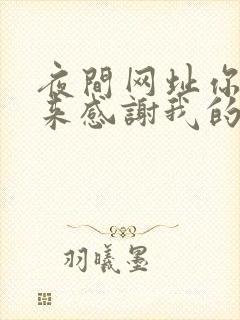 夜間网址你
来感謝我的
羽曦墨